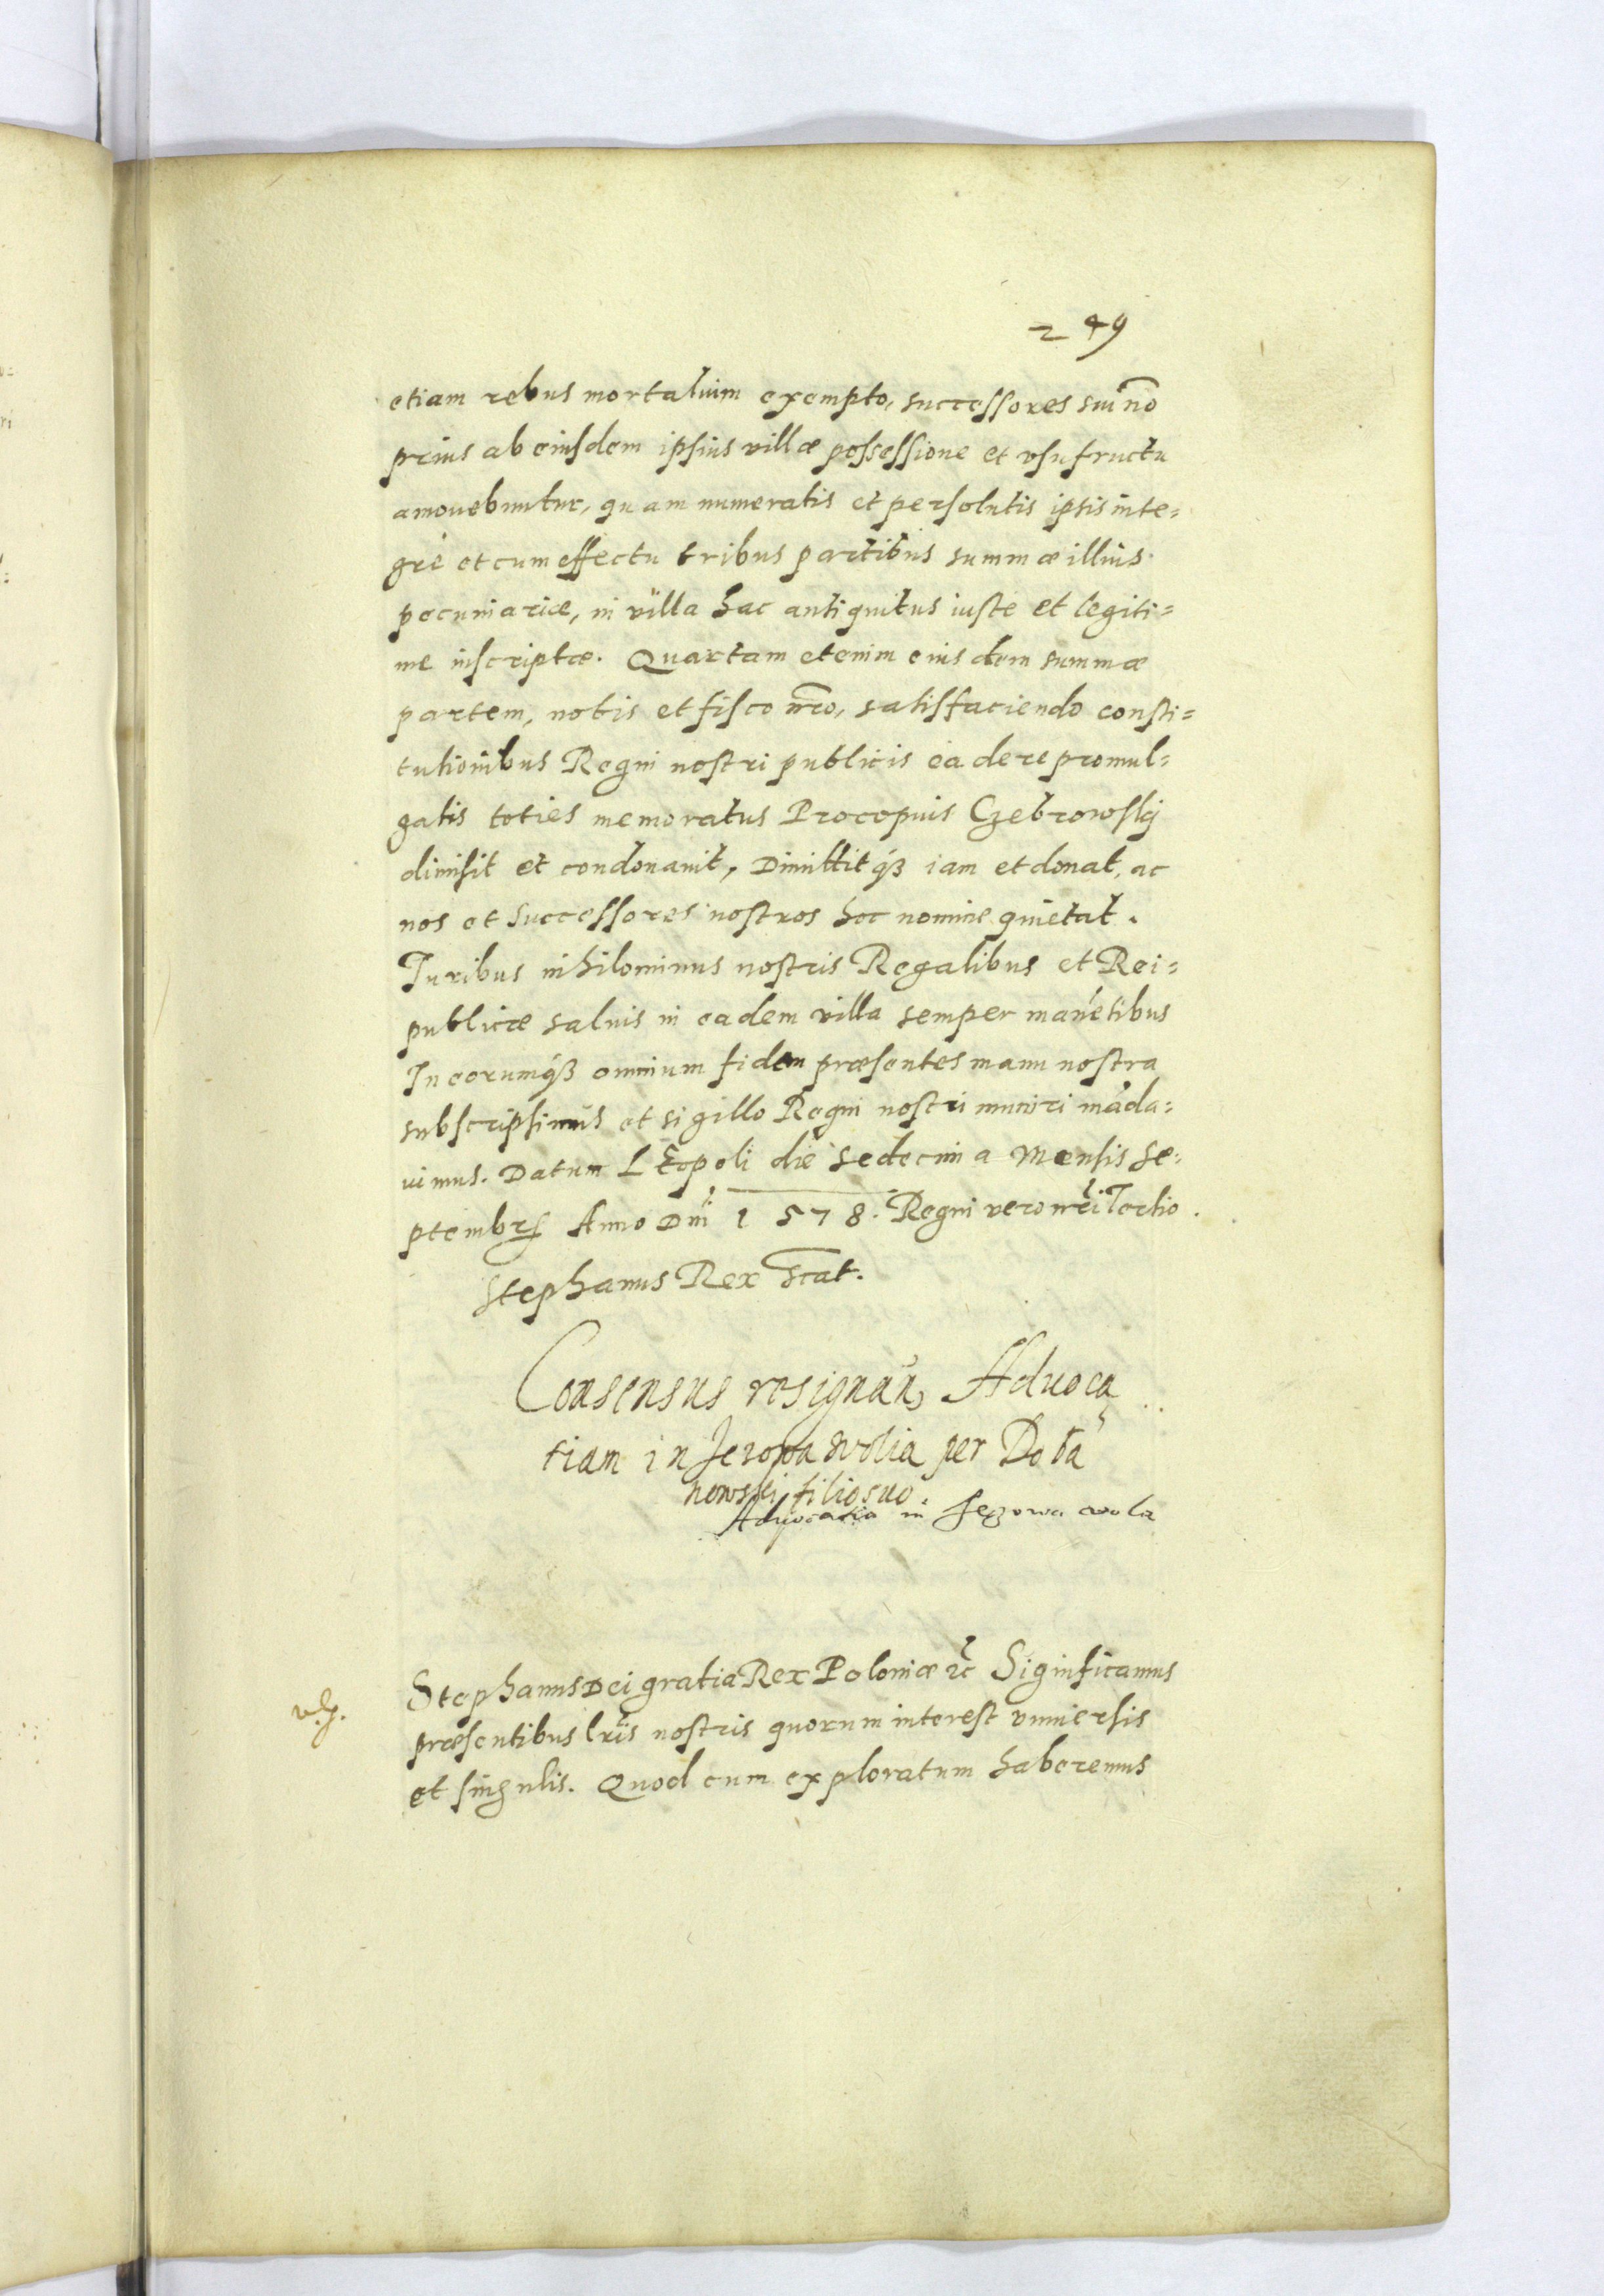 249
etiam rebus mortalium exempto, successores sui nõ
prius ab eiusdem ipsius villæ possessione et vsufructu
amouebuntur, quam numeratis et persolutis ipsis inte=
gre et cum effectu tribus partibus summæ illius
pecuniariæ, in villa hac antiquitus iuste et legiti=
me inscriptæ. Quartam etenim eiusdem summæ
partem, nobis et fisco nr̃o, satisfaciendo consti=
tutionibus Regni nostri publicis ea de re promul=
gatis toties memoratus Procopius Czebrowskij
dimisit et condonauit, Dimittitqꝫ iam et donat, ac
nos et successores nostros hoc nomine quietat.
Iuribus nihilominus nostris Regalibus et Rei=
publicæ saluis in eadem villa semper manẽtibus
In eorumqꝫ omnium fidem præsentes manu nostra
subscripsimus et sigillo Regni nostri muniri mãda=
uimus. Datum LEopoli die sedecima Mensis Se=
ptembrꝭ Anno Dnĩ 1578. Regni vero nr̃i Tertio.
Stephanus Rex scat.
Consensus resignañ Aduoca
tiam in Jezowa wolia per Doba
nowski filio suo.
Aduocatia in Jezowa wola
Stephanus Dei gratia Rex Poloniæ ꝛc̃ Significamus
præsentibus lr̃is nostris quorum interest vniuersis
et singulis. Quod cum exploratum haberemus